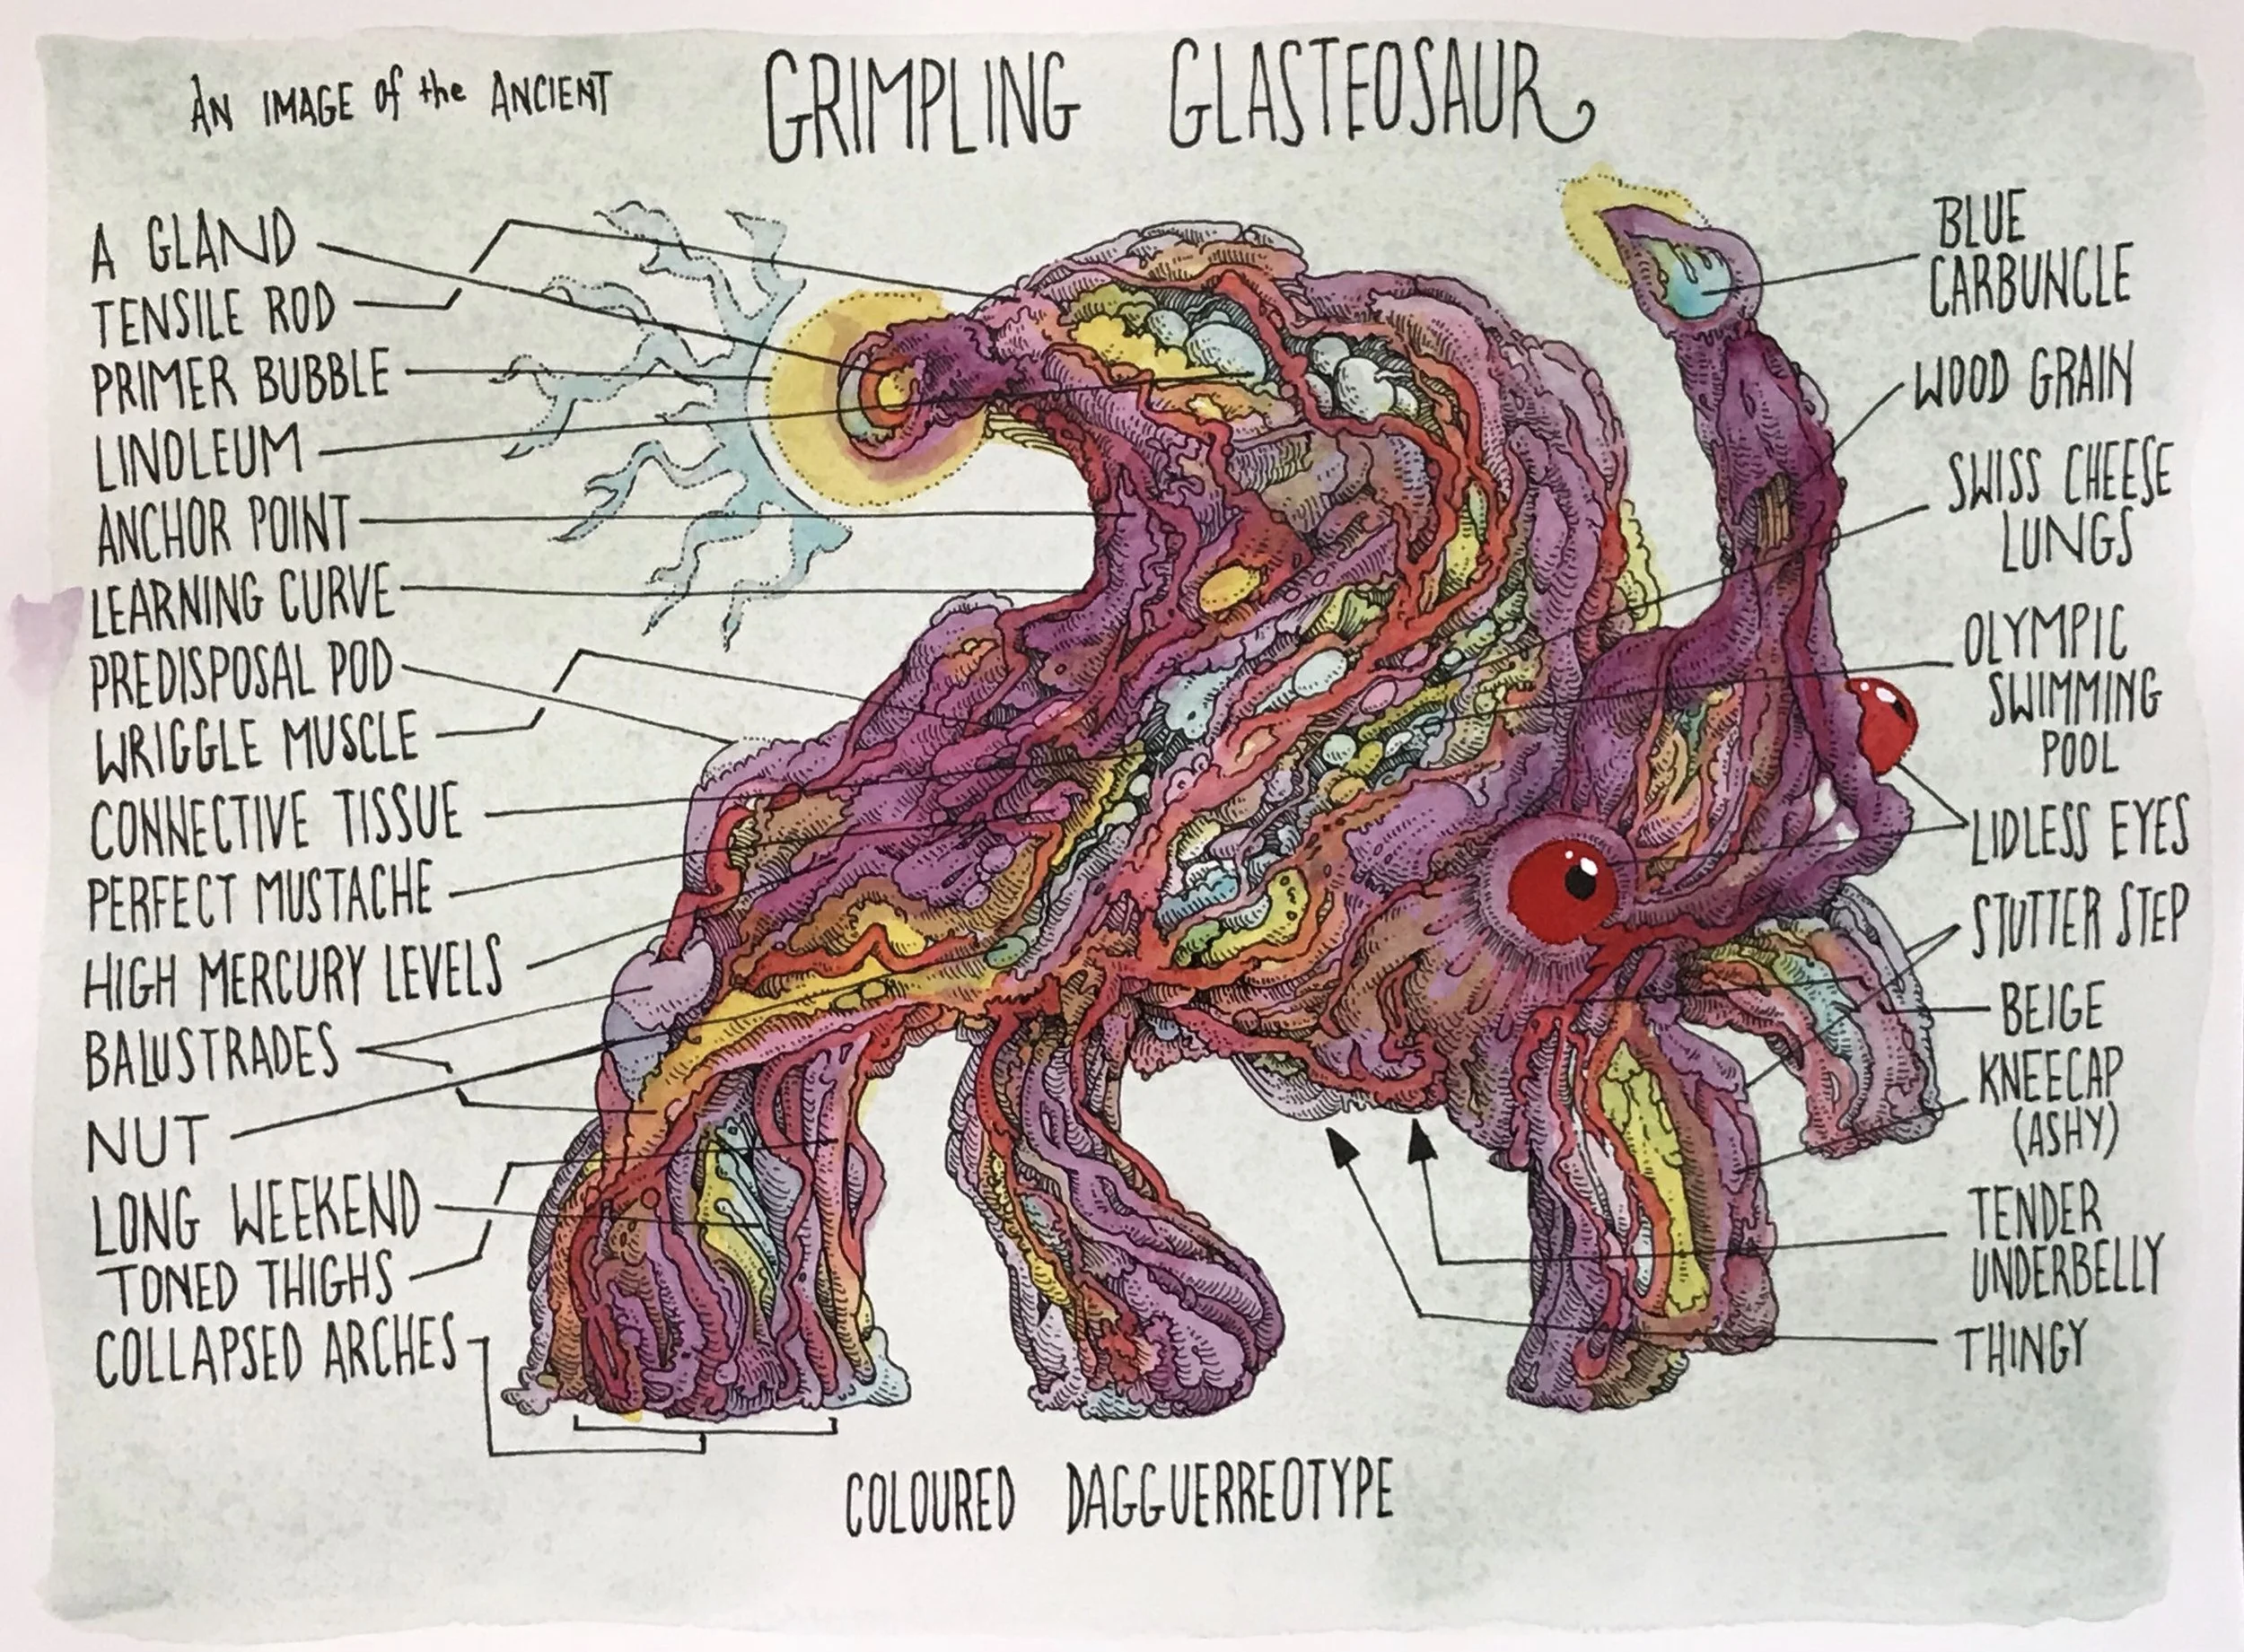 AN IMAGE of the ANCIENT
GRIMPLING GLASTEOSAUR
A GLAND
TENSILE ROD
PRIMER BUBBLE
LINOLEUM
ANCHOR POINT
LEARNING CURVE
PREDISPOSAL POD
WRIGGLE MUSCLE
CONNECTIVE TISSUE
PERFECT MUSTACHE
HIGH MERCURY LEVELS
BALUSTRADES
NUT
LONG WEEKEND
TONED THIGHS
COLLAPSED ARCHES
BLUE
CARBUNCLE
WOOD GRAIN
SWISS CHEESE
LUNGS
OLYMPIC
SWIMMING
POOL
LIDLESS EYES
STUTTER STEP
BEIGE
KNEECAP
(ASHY)
TENDER
UNDERBELLY
THINGY
COLOURED DAGGUERREOTYPE